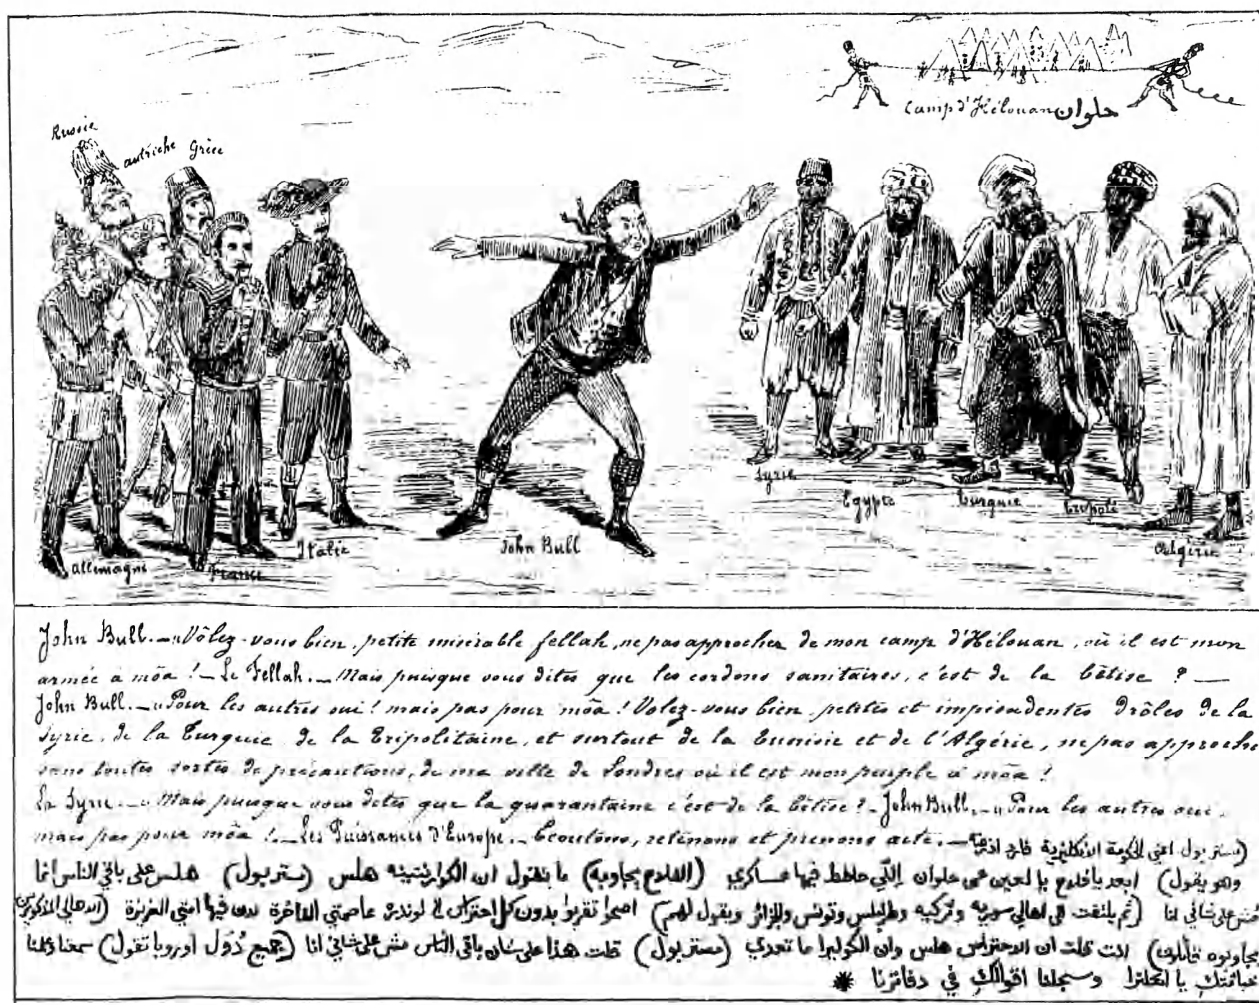 Camp d'Hélouan حلوان
Russie
autriche Grèce
Syrie
Egypte
Turquie
Tripoli
Algérie
John Bull
Italie
France
Allemagne
John Bull. — "Vôlez-vous bien, petite misérable fellah, ne pas approcher de mon camp d'Hélouan, où il est mon
armée à môa! — Le Fellah. — Mais puisque vous dites que les cordons sanitaires, c'est de la bêtise? —
John Bull. — "Pour les autres oui! mais pas pour môa! Volez-vous bien, petites et impioudentes drôles de la
Syrie, de la Turquie, de la Tripolitaine, et surtout de la Tunisie et de l'Algérie, ne pas approcher
sans toutes sortes de précautions, de ma ville de Londres où il est mon peuple à môa!
La Syrie. — "Mais puisque vous dites que la quarantaine c'est de la bêtise? — John Bull. — "Pour les autres oui,
mais pas pour môa! — Les Puissances d'Europe. — Ecoutons, retenons et prenons acte. — (مستر بول اعني الحكومة الانكليزية فارد
وهو يقول) ابعد يا فلاح يا لعين عن حلوان اللي حاطط فيها عساكري (الفلاح يجاوبه) ما بتقول ان الكورنتينه هلس (مستر بول) هلس على باقي الناس انما
مش على شاني انا (ثم يلتفت الى اهالي سوريه وتركيه وطرابلس وتونس والجزائر ويقول لهم) اصحوا تقربوا بدون كل احتراس الى لوندره عاصمتي الفاخرة لان فيها امتي العزيزة (الاهالي المذكورين
يجاوبوه قائلين) انت قلت ان الاحتراس هلس وان الكوليرا ما تعدي (مستر بول) قلت هذا على شان باقي الناس مش على شاني انا (جميع دول اوروبا تقول) سمعنا
يا انجلترا وسجلنا اقوالك في دفاترنا *